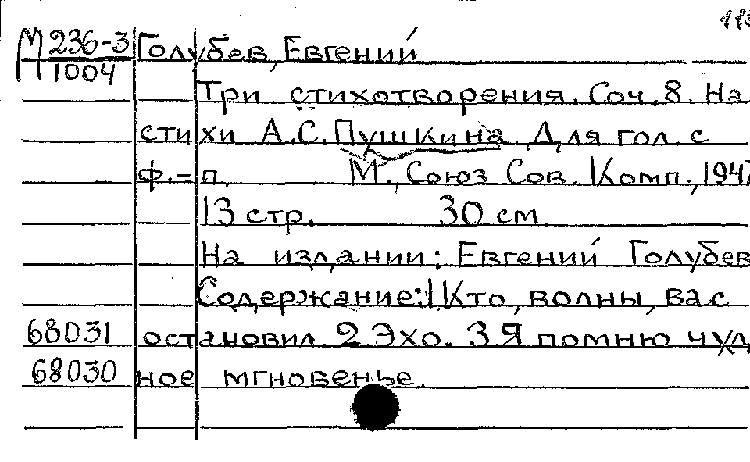 М 236-3 Голубев, Евгений
1004
Три стихотворения. Соч. 8. На
стихи А.С. Пушкина Для гол. с
ф.-п. М., Союз Сов. Комп., 1947
13 стр. 30 см
На издании: Евгений Голубев
Содержание: 1 Кто, волны, вас
68031 остановил 2 Эхо. 3 Я помню чуд
68030 ное мгновенье.